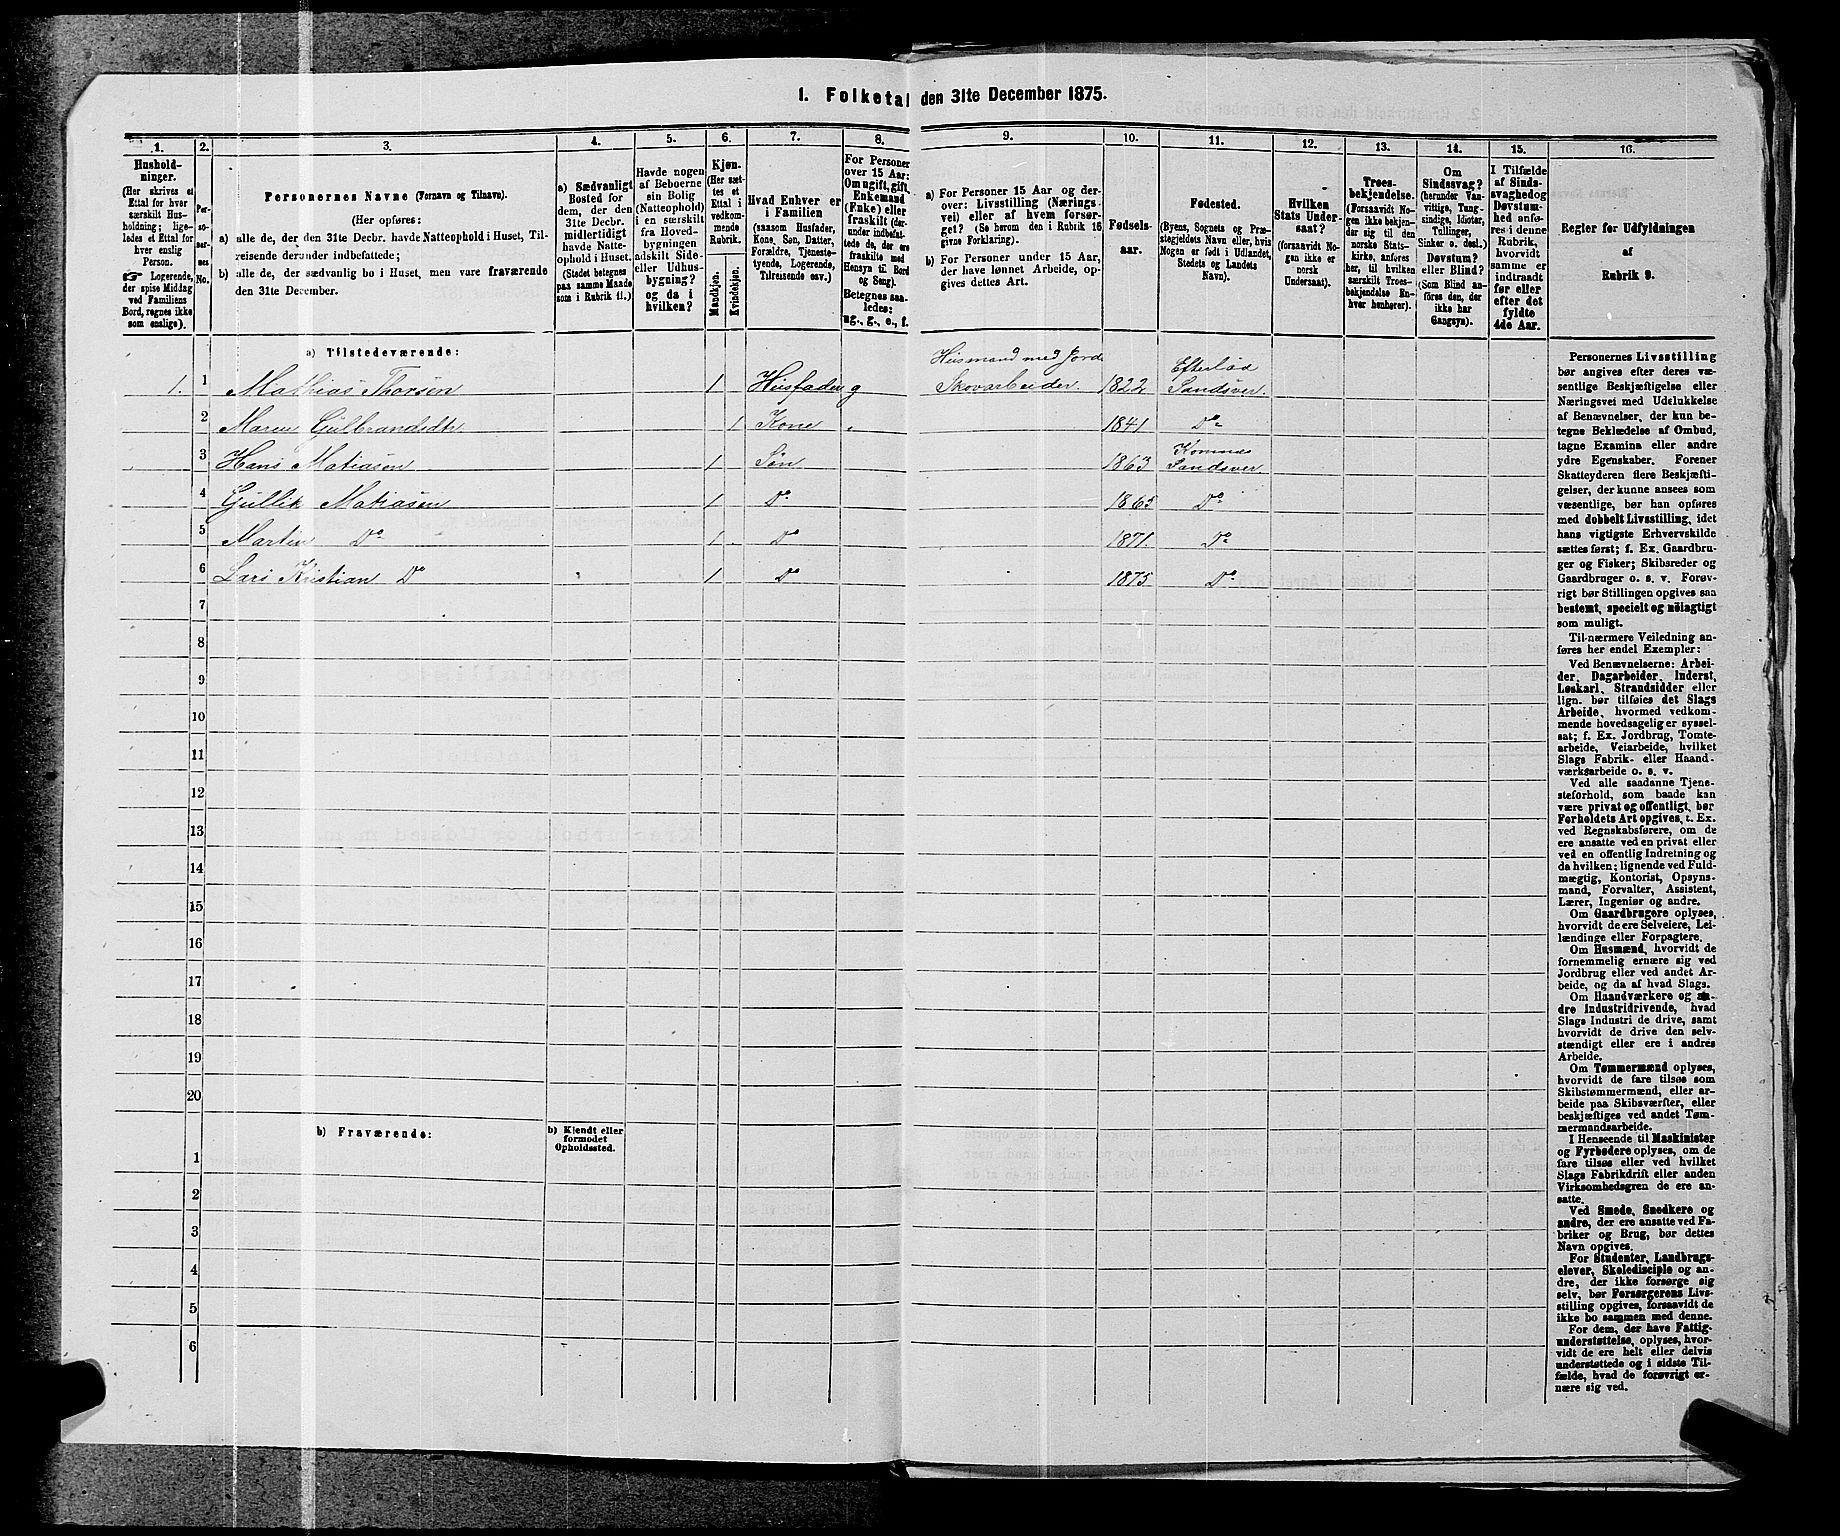 1. Folketal den 31te December 1875.
1. 2. 3. 4. 5. 6. 7. 8. 9. 10. 11. 12. 13. 14. 15. 16.
Hushold-
ninger.
(Her skrives et
Ettal for hver
særskilt Hus-
holdning; lige-
ledes et Ettal for
hver enslig
Person.
☞ Logerende,
der spise Middag
ved Familiens
Bord, regnes ikke
som enslige).
Per-
so-
ner-
nes
No.
Personernes Navne (Fornavn og Tilnavn).
(Her opføres:
a) alle de, der den 31te Decbr. havde Natteophold i Huset, Til-
reisende derunder indbefattede;
b) alle de, der sædvanlig bo i Huset, men vare fraværende
den 31te December.
a) Sædvanligt
Bosted for
dem, der den
31te Decbr.
midlertidigt
havde Natte-
ophold i Huset.
(Stedet betegnes
paa samme Maade
som i Rubrik 11.)
Havde nogen
af Beboerne
sin Bolig
(Natteophold)
i en særskilt
fra Hoved-
bygningen
adskilt Side-
eller Udhus-
bygning?
og da i
hvilken?
Kjøn.
(Her sæt-
tes et
Ettal i
vedkom-
mende
Rubrik.
Mandkjøn.
Kvindekjøn.
Hvad Enhver er
i Familien
(saasom Husfader,
Kone, Søn, Datter,
Forældre, Tjeneste-
tyende, Logerende,
Tilreisende osv.)
For Personer
over 15 Aar:
Om ugift, gift,
Enkemand
(Enke) eller
fraskilt (der-
under indbefat-
tede de, der ere
fraskilte med
Hensyn til Bord
og Seng).
Betegnes saa-
ledes:
ug., g., e., f.
a) For Personer 15 Aar og der-
over: Livsstilling (Nærings-
vei) eller af hvem forsør-
get? (Se herom den i Rubrik 16
givne Forklaring).
b) For Personer under 15 Aar,
der have lønnet Arbeide, op-
gives dettes Art.
Fødsels-
aar.
Fødested.
(Byens, Sognets og Præ-
stegjeldets Navn eller, hvis
Nogen er født i Udlandet,
Stedets og Landets
Navn).
Hvilken
Stats Under-
saat?
(forsaavidt No-
gen ikke er
norsk
Undersaat).
Troes-
bekjendelse.
(Forsaavidt No-
gen ikke bekjen-
der sig til den
norske Stats-
kirke, anføres
her, til hvilken
særskilt Troes-
bekjendelse En-
hver henhører).
Om
Sindssvag?
(herunder Van-
vittige, Tung-
sindige, Idioter,
Tullinger,
Sinker o. desl.)
Døvstum?
eller Blind?
(Som Blind an-
føres den, der
ikke har
Gangsyn).
I Tilfælde
af Sinds-
svaghed og
Døvstum-
hed anfø-
res i denne
Rubrik,
hvorvidt
samme er
indtraadt
før eller
efter det
fyldte
4de Aar.
Regler for Udfyldningen
af
Rubrik 9.
a) Tilstedeværende:
Husmand med Jord Efteløt
1. 1 Mathias Thorsen 1 Husfader g Skovarbeider. 1822 Sandsver.
2 Maren Gulbrandsdtr 1 Kone " 1841 Do
Komnes
3 Hans Matiasen 1 Søn 1863 Sandsver.
4 Gullik Matiasen 1 Do 1865 Do
5 Martin Do 1 Do 1871. Do
6 Lars Kristian Do 1 Do 1875 Do
7
8
9
10
11
12
13
14
15
16
17
18
19
20
b) Fraværende:
b) Kjendt eller
formodet
Opholdssted.
1
2
3
4
5
6
Personernes Livsstilling
bør angives efter deres væ-
sentlige Beskjæftigelse eller
Næringsvei med Udelukkelse
af Benævnelser, der kun be-
tegne Beklædelse af Ombud,
tagne Examina eller andre
ydre Egenskaber. Forener
Skatteyderen flere Beskjæfti-
gelser, der kunne ansees som
væsentlige, bør han opføres
med dobbelt Livsstilling, idet
hans vigtigste Erhvervskilde
sættes først; f. Ex. Gaardbru-
ger og Fisker; Skibsreder og
Gaardbruger o. s. v. Forøv-
rigt bør Stillingen opgives saa
bestemt, specielt og nøiagtigt
som muligt.
Til nærmere Veiledning an-
føres her endel Exempler:
Ved Benævnelserne: Arbei-
der, Dagarbeider, Inderst,
Løskarl, Strandsidder eller
lign. bør tilføies det Slags
Arbeide, hvormed vedkom-
mende hovedsagelig er syssel-
sat; f. Ex. Jordbrug, Tomte-
arbeide, Veiarbeide, hvilket
Slags Fabrik- eller Haand-
værksarbeide o. s. v.
Ved alle saadanne Tjene-
steforhold, som baade kan
være privat og offentligt, bør
Forholdets Art opgives, t. Ex.
ved Regnskabsførere, om de
ere ansatte ved en privat eller
ved en offentlig Indretning og
da hvilken; lignende ved Fuld-
mægtig, Kontorist, Opsyns-
mand, Forvalter, Assistent,
Lærer, Ingeniør og andre.
Om Gaardbrugere oplyses,
hvorvidt de ere Selveiere, Lei-
lændinge eller Forpagtere.
Om Husmænd, hvorvidt de
fornemmelig ernære sig ved
Jordbrug eller ved andet Ar-
beide, og da af hvad Slags.
Om Haandværkere og an-
dre Industridrivende, hvad
Slags Industri de drive, samt
hvorvidt de drive den selv-
stændigt eller ere i andres
Arbeide.
Om Tømmermænd oplyses,
hvorvidt de fare tilsøs som
Skibstømmermænd, eller ar-
beide paa Skibsværfter, eller
beskjæftiges ved andet Tøm-
mermandsarbeide.
I Henseende til Maskinister
og Fyrbødere oplyses, om de
fare tilsøs eller ved hvilket
Slags Fabrikdrift eller anden
Virksomhedsgren de ere an-
satte.
Ved Smede, Snedkere og
andre, der ere ansatte ved Fa-
briker og Brug, bør dettes
Navn opgives.
For Studenter, Landbrugs-
elever, Skoledisciple og an-
dre, der ikke forsørge sig
selv, bør Forsørgerens Livs-
stilling opgives, forsaavidt de
ikke bo sammen med denne.
For dem, der have Fattig-
understøttelse, oplyses, hvor-
vidt de ere helt eller delvis
understøttede og i sidste Til-
fælde, hvad de forøvrigt er-
nære sig ved.